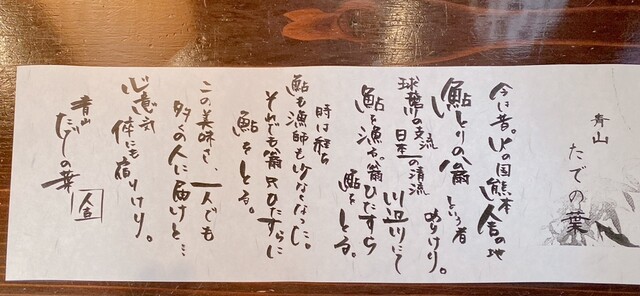 青山
たでの葉
今は昔。火の国熊本
人吉の地
鮎とりの翁
という者
ありけり。
球磨川の支流
日本一の清流
川辺川にて
鮎を漁る翁ひたすら
鮎をとる。
時は経ち
鮎も漁師も少なくなった。
それでも翁只ひたすらに
鮎をとる。
この美味さ、一人でも
多くの人に届けと…
心意気
体にも宿りけり。
青山
たでの葉
人吉